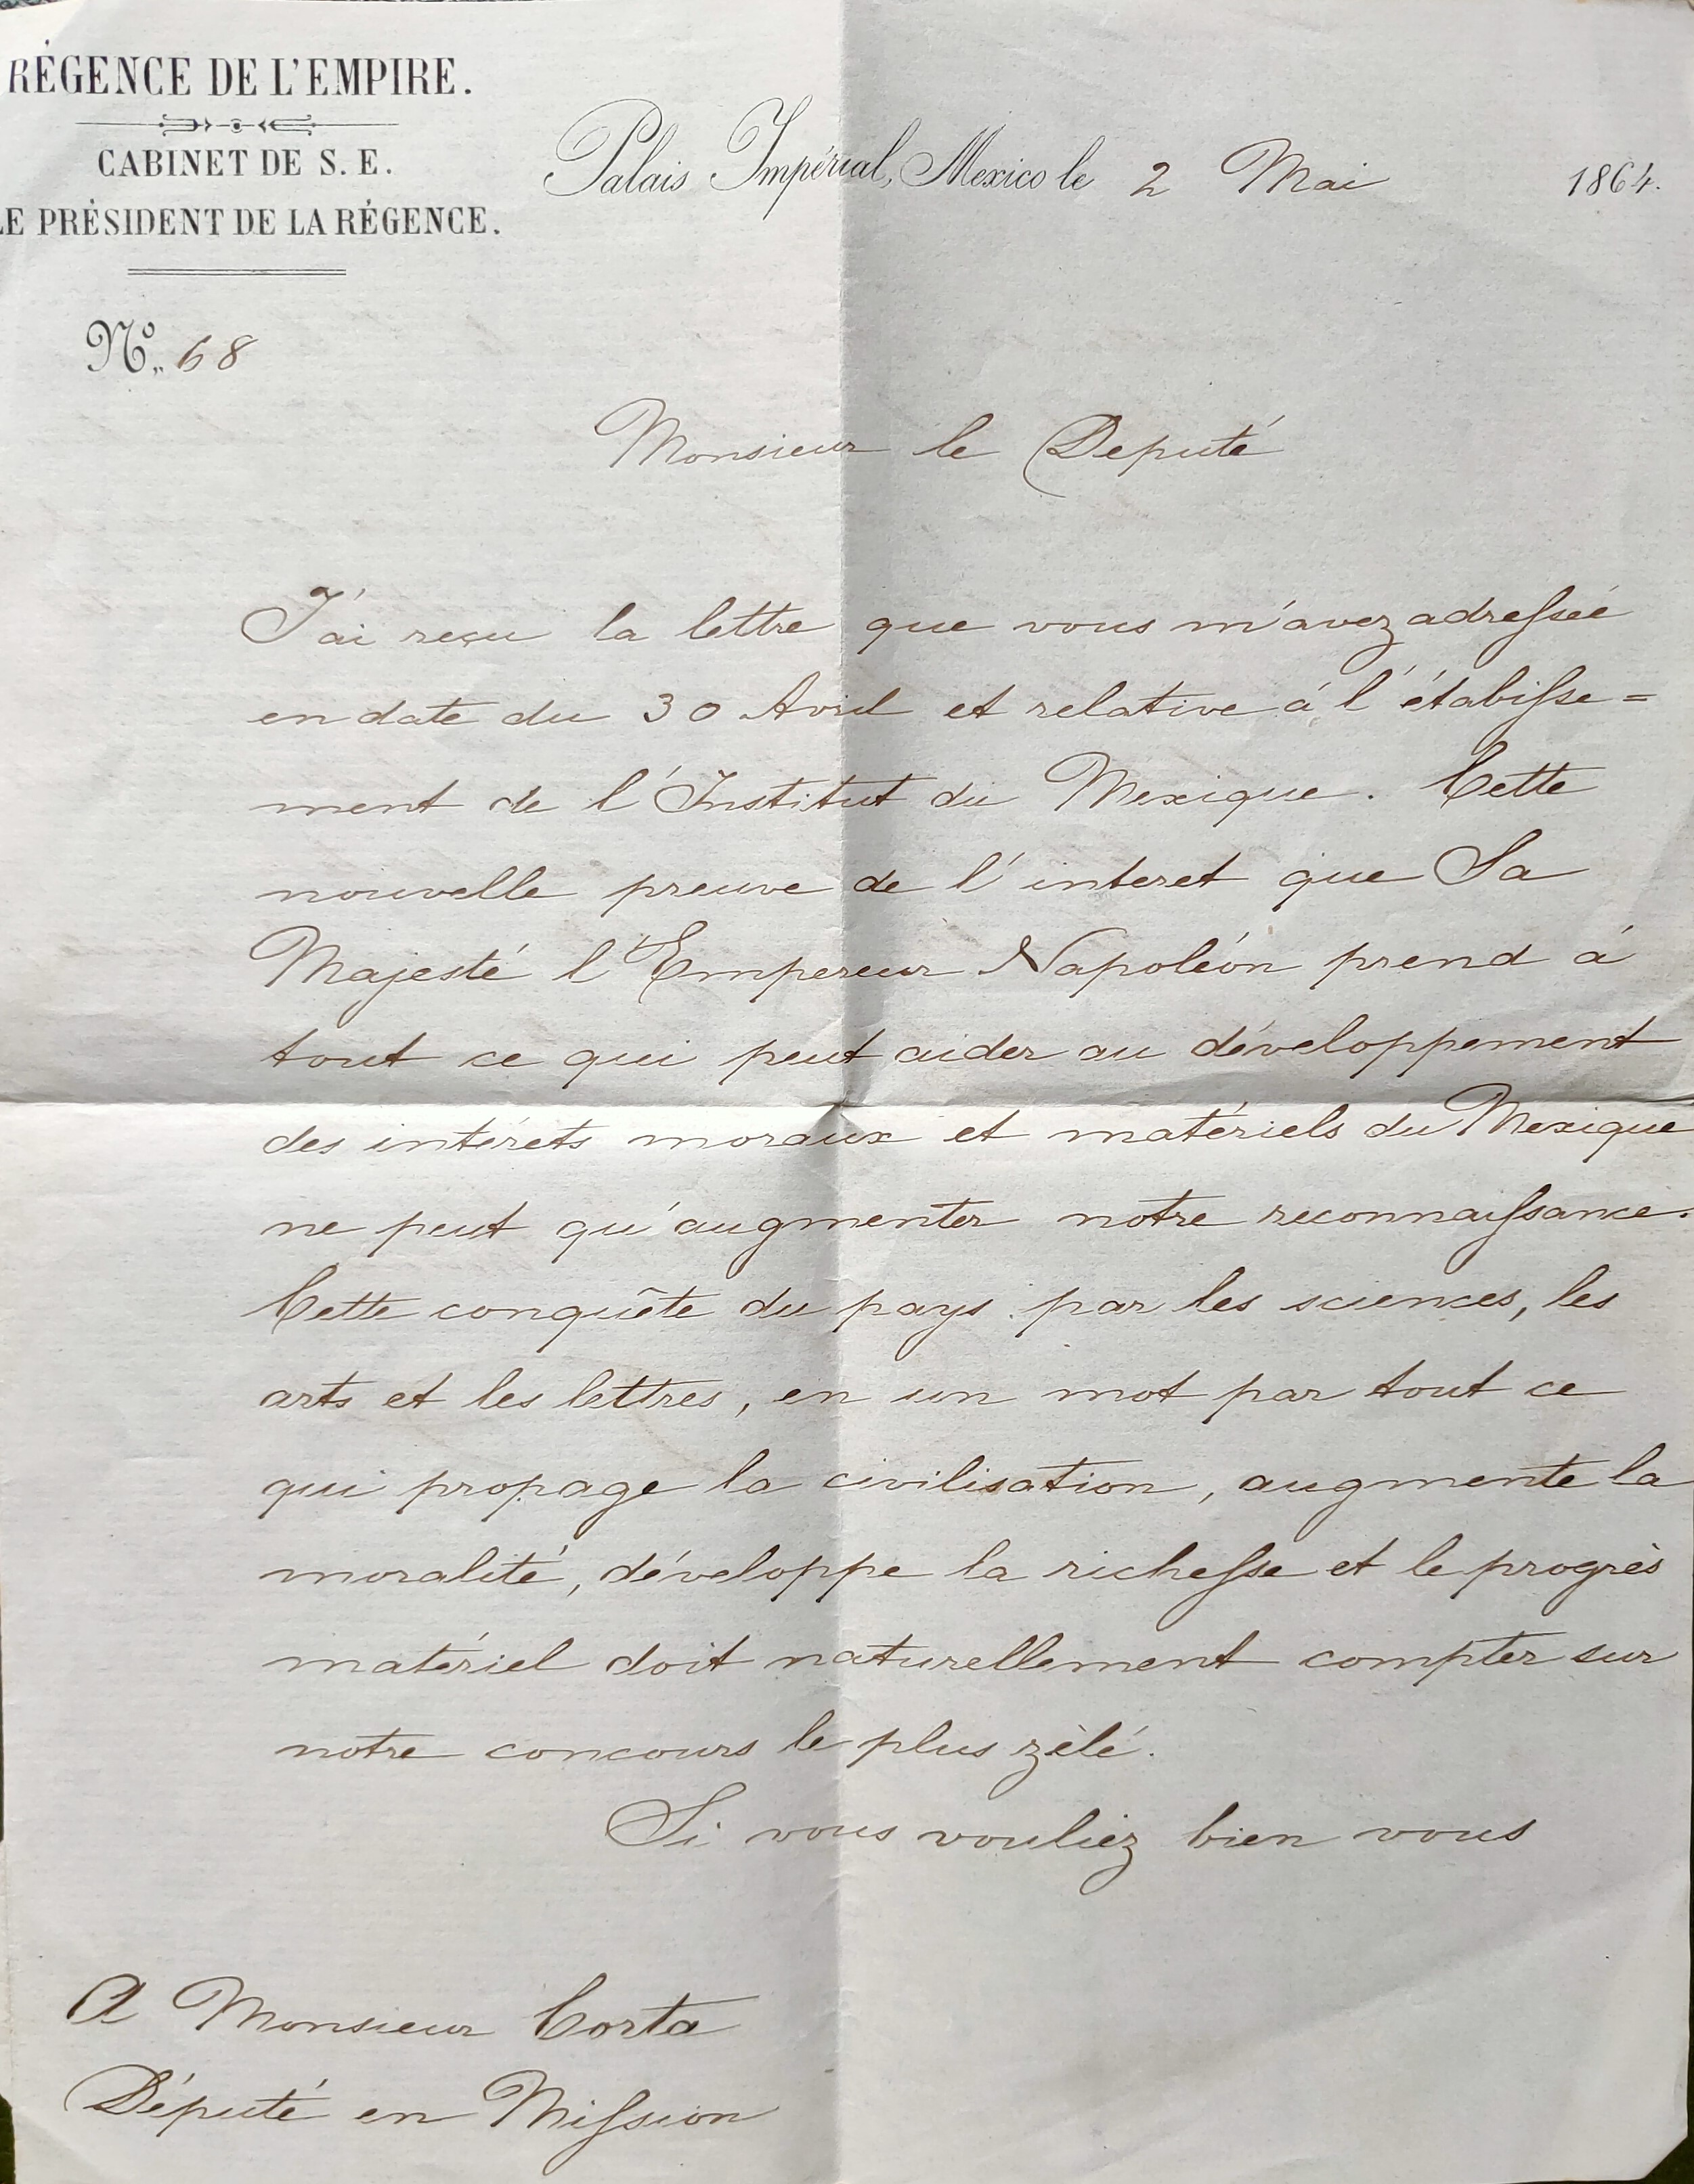 RÉGENCE DE L'EMPIRE.
CABINET DE S. E.
LE PRÉSIDENT DE LA RÉGENCE.
Palais Impérial, Mexico le 2 Mai 1864.
Nº 68
Monsieur le Deputé
J'ai reçu la lettre que vous m'avez adressée
en date du 30 Avril et relative á l'étabisse=
ment de l'Institut du Mexique. Cette
nouvelle preuve de l'interet que Sa
Majesté l'Empereur Napoléon prend á
tout ce qui peut aider au développement
des intérets moraux et matériels du Mexique
ne peut qu'augmenter notre reconnaissance.
Cette conquête du pays par les sciences, les
arts et les lettres, en un mot par tout ce
qui propage la civilisation, augmente la
moralité, développe la richesse et le progrès
matériel doit naturellement compter sur
notre concours le plus zèlé.
Si vous vouliez bien vous
A Monsieur Corta
Député en Mission